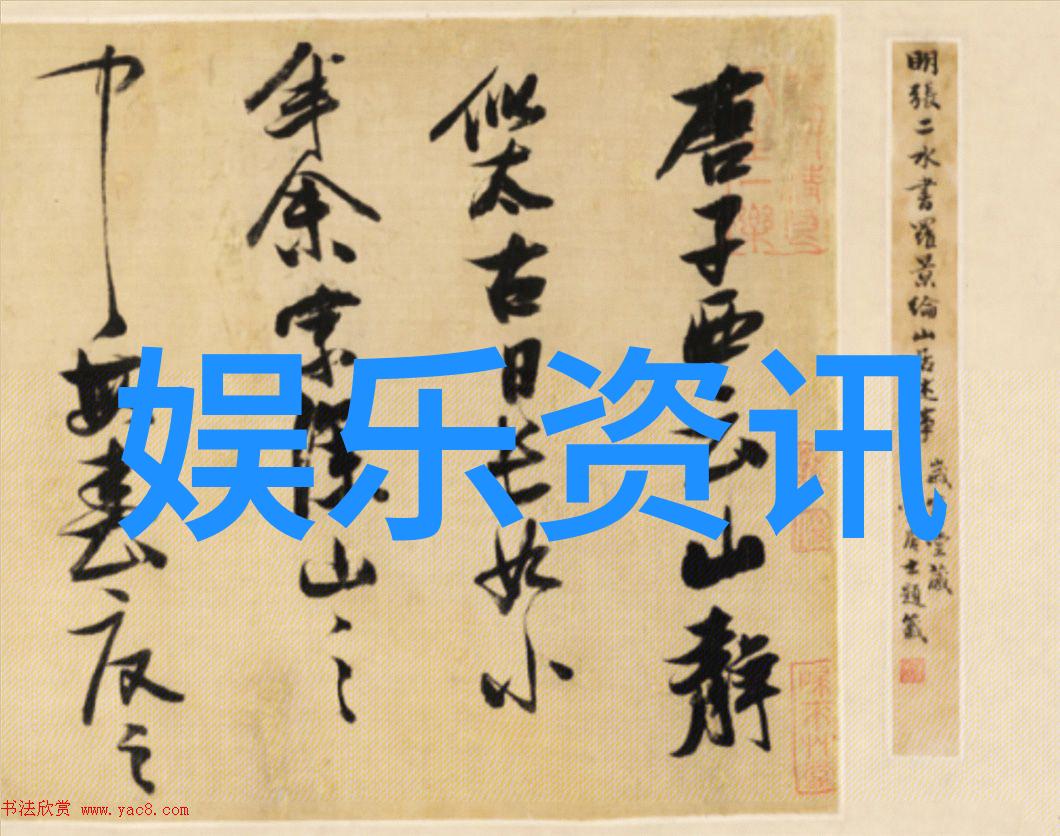 唐子西云山靜
似太古日長如小
年余家深山之
中每春夏之
明張二水書羅景綸山居述事
題籤
娱乐资讯
书法欣赏 www.yac8.com